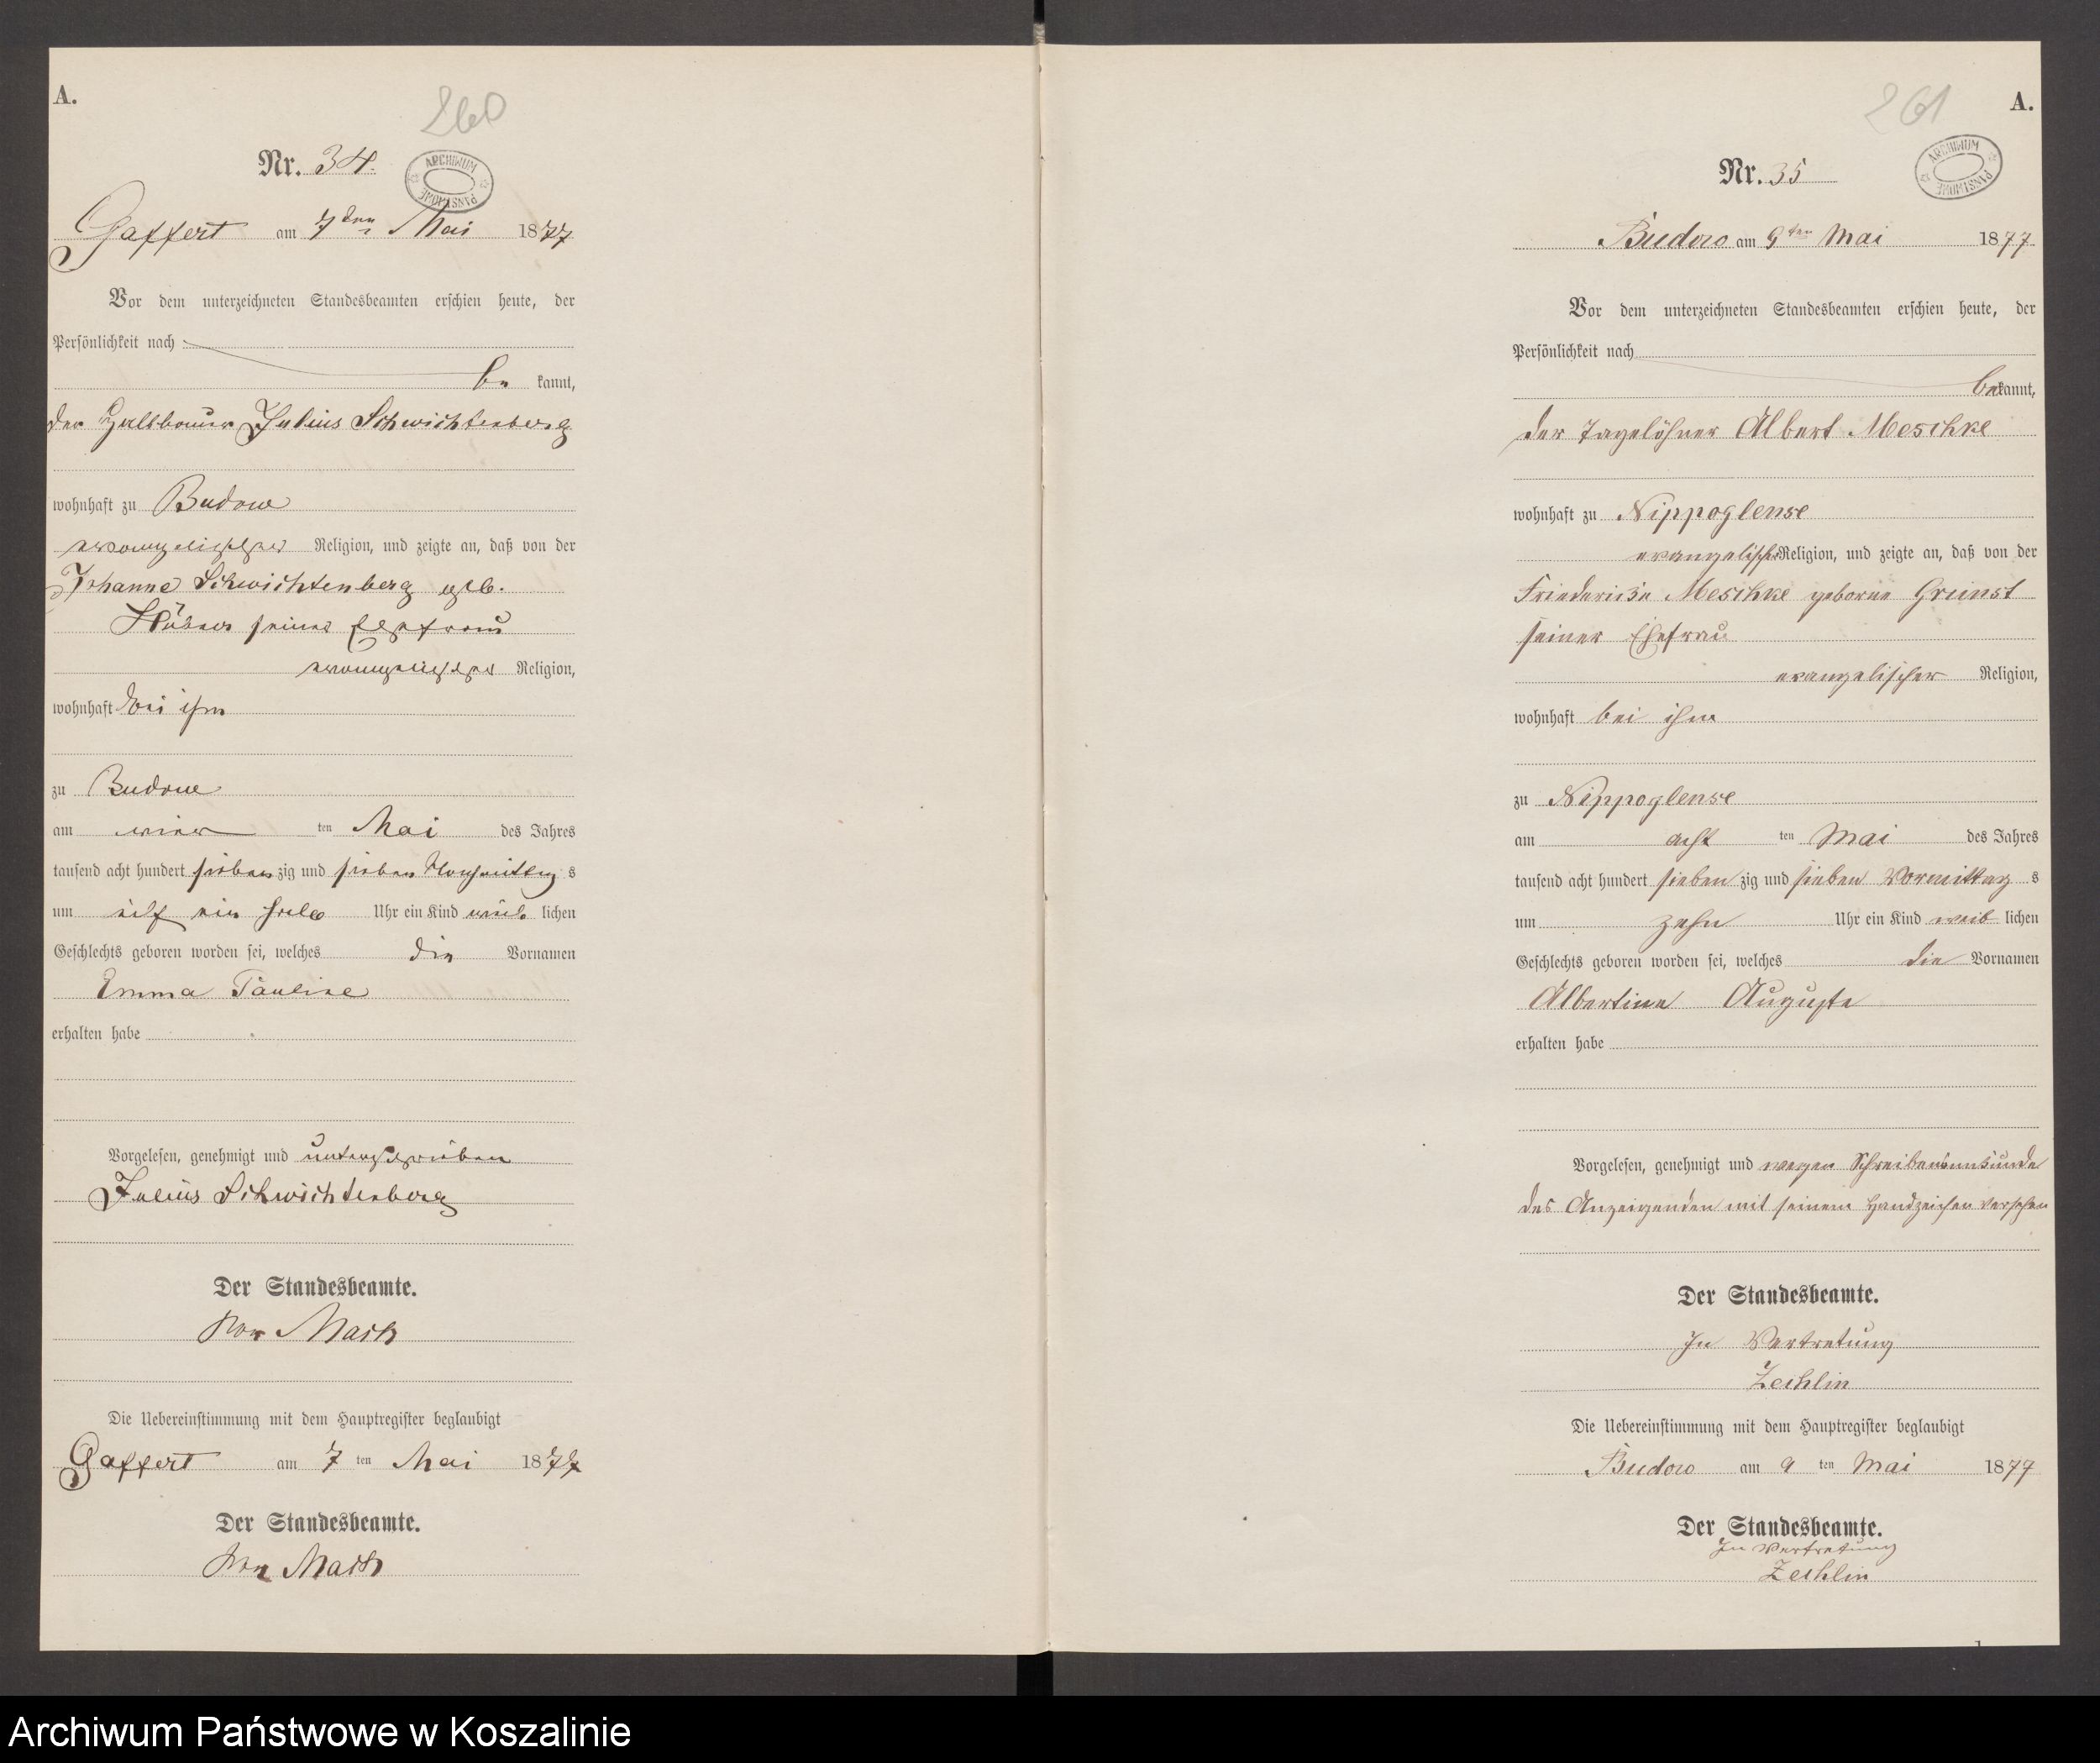 A.
260
Nr. 34.
ARCHIWUM PAŃSTWOWE
Gaffert am 7ten Mai 1877
Vor dem unterzeichneten Standesbeamten erschien heute, der
Persönlichkeit nach
be kannt,
der Halbbauer Julius Schwichtenberg
wohnhaft zu Budow
evangelischer Religion, und zeigte an, daß von der
Johanne Schwichtenberg geb.
seiner Ehefrau
evangelischer Religion,
wohnhaft bei ihm
zu Budow
am vier ten Mai des Jahres
tausend acht hundert sieben zig und sieben Nachmittag s
um elf ein halb Uhr ein Kind weib lichen
Geschlechts geboren worden sei, welches die Vornamen
Emma Pauline
erhalten habe
Vorgelesen, genehmigt und unterschrieben
Julius Schwichtenberg
Der Standesbeamte.
von Mach
Die Uebereinstimmung mit dem Hauptregister beglaubigt
Gaffert am 7 ten Mai 1877
Der Standesbeamte.
von Mach
261
A.
Nr. 35
ARCHIWUM PAŃSTWOWE
Budow am 9ten Mai 1877
Vor dem unterzeichneten Standesbeamten erschien heute, der
Persönlichkeit nach
bekannt,
der Tagelöhner Albert Meschke
wohnhaft zu Nippoglense
evangelischer Religion, und zeigte an, daß von der
Friederike Meschke geborne Grunst
seiner Ehefrau
evangelischer Religion,
wohnhaft bei ihm
zu Nippoglense
am acht ten Mai des Jahres
tausend acht hundert sieben zig und sieben Vormittag s
um zehn Uhr ein Kind weib lichen
Geschlechts geboren worden sei, welches die Vornamen
Albertine Auguste
erhalten habe
Vorgelesen, genehmigt und wegen Schreibensunkunde
des Anzeigenden mit seinem Handzeichen versehen
Der Standesbeamte.
In Vertretung
Zechlin
Die Uebereinstimmung mit dem Hauptregister beglaubigt
Budow am 9 ten Mai 1877
Der Standesbeamte.
In Vertretung
Zechlin
Archiwum Państwowe w Koszalinie